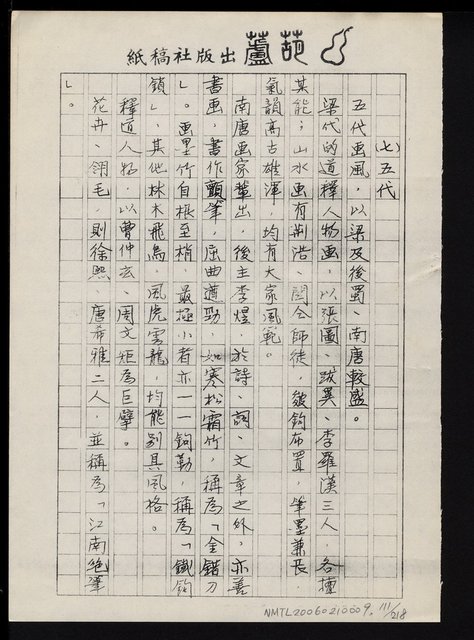 紙稿社版出蘆葫
(七)五代
五代画風，以梁及後蜀、南唐較盛。
梁代的道釋人物画，以張圖、跋異、李羅漢三人，各擅
其能；山水画有荊浩、関仝師徒，皴鉤布置，筆墨兼長，
氣韻高古雄渾，均有大家風範。
南唐画家輩出，後主李煜，於詩、詞、文章之外，亦善
書画，書作顫筆，屈曲遒勁，如寒松霜竹，稱為「金錯刀
」。画墨竹自根至梢，最極小者亦一一鉤勒，稱為「鐵鉤
鎖」，其他林木飛鳥，風虎雲龍，均能別具風格。
釋道人物，以曹仲玄、周文矩為巨擘。
花卉、翎毛，則徐熙、唐希雅二人，並稱為「江南絕筆
」。
NMTL20060210009. 111/218